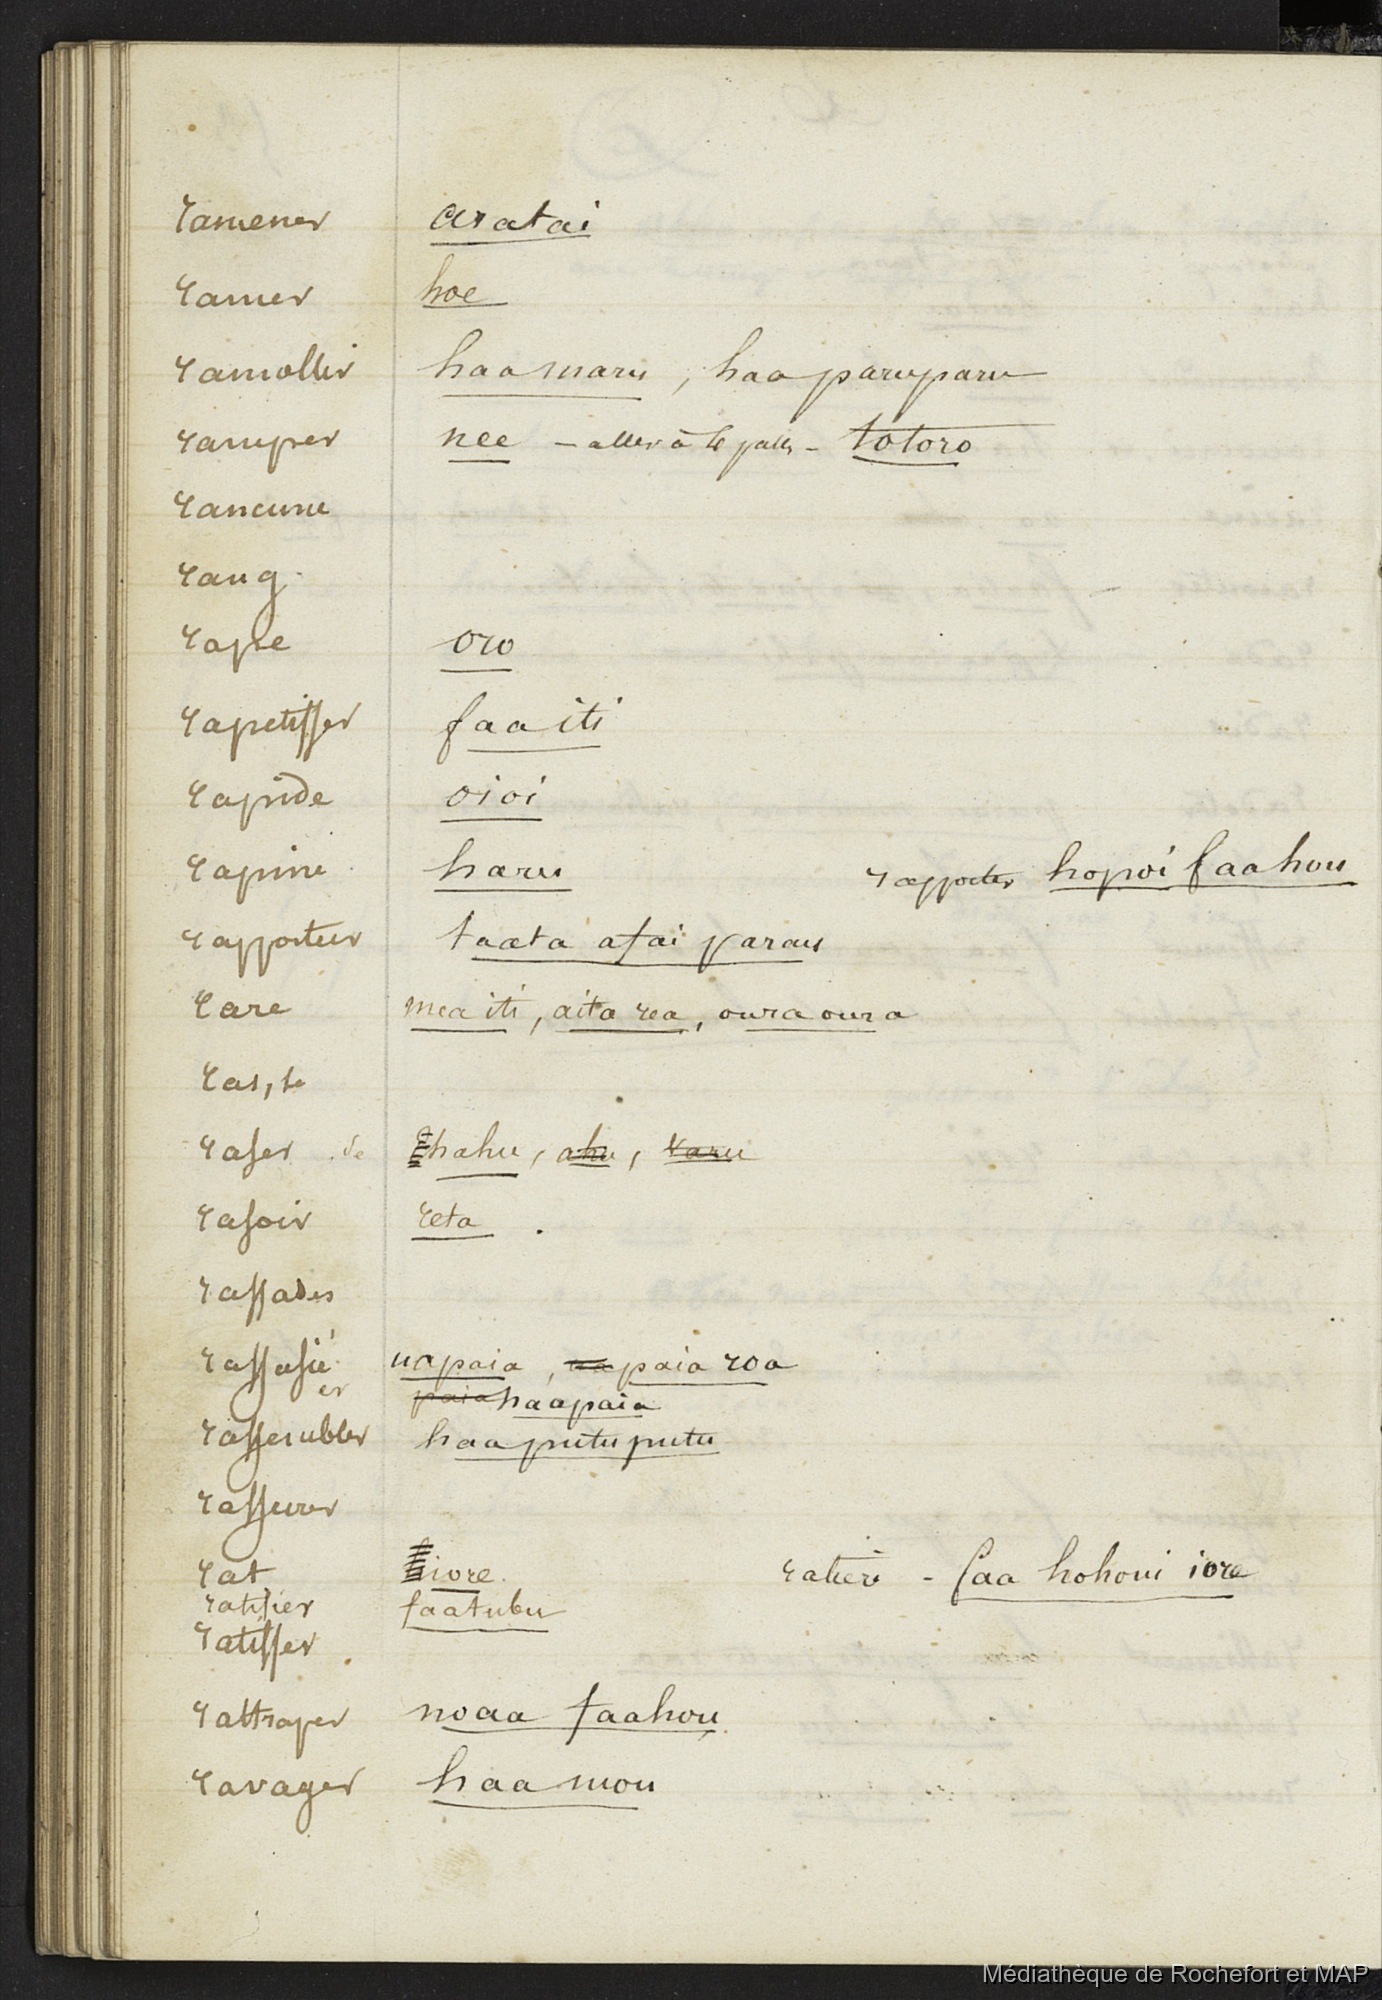 ramener aratai
ramer hoe
ramollir haamaru, haaparuparu
ramper nee - aller à 4 pattes - totoro
rancune
rang
rape oro
rapetisser faaiti
rapide oioi
rapine haru rapporter hopoi faahou
rapporteur taata afai parau
rare mea iti, aita rea, ouraoura
ras, te
raser se hahu, ahu, varu
rasoir reta
rassades
rassasié uapaia, ua paia roa
er paia haapaia
rassembler haaputuputu
rassurer
rat iore ratière - faa hohoni iore
ratifier faatubu
ratisser
rattraper noaa faahou
ravager haamou
Médiathèque de Rochefort et MAP